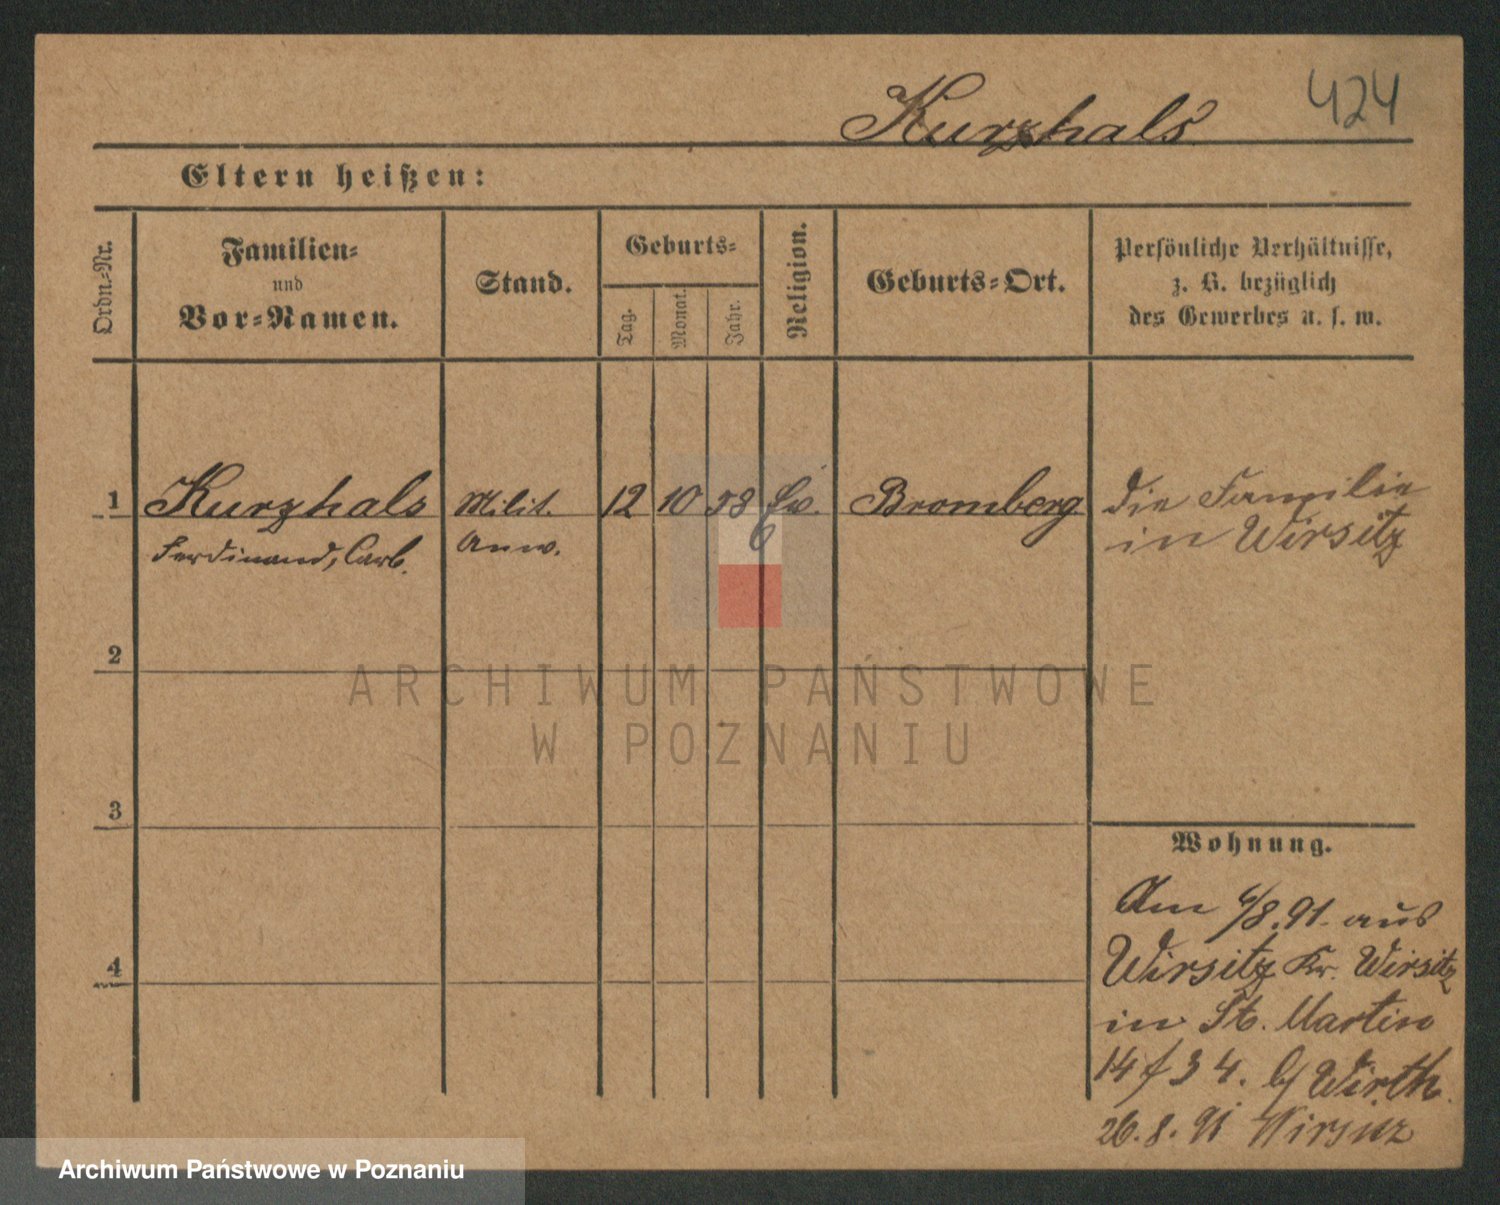 Kurzhals 424
Eltern heißen:
Ordn.-Nr.
Familien-
und
Vor-Namen.
Stand.
Geburts-
Tag.
Monat.
Jahr.
Religion.
Geburts-Ort.
Persönliche Verhältnisse,
z. B. bezüglich
des Gewerbes u. s. w.
1 Kurzhals Milit. 12 10 58 Ev. Bromberg die Familie
Ferdinand, Carl. Anw. 6 in Wirsitz
2
3
4
Wohnung.
Am 6/8.91. aus
Wirsitz Kr. Wirsitz
in St. Martin
34. b/ Wirth.
26.8.91 Wirsitz
ARCHIWUM PAŃSTWOWE
W POZNANIU
Archiwum Państwowe w Poznaniu